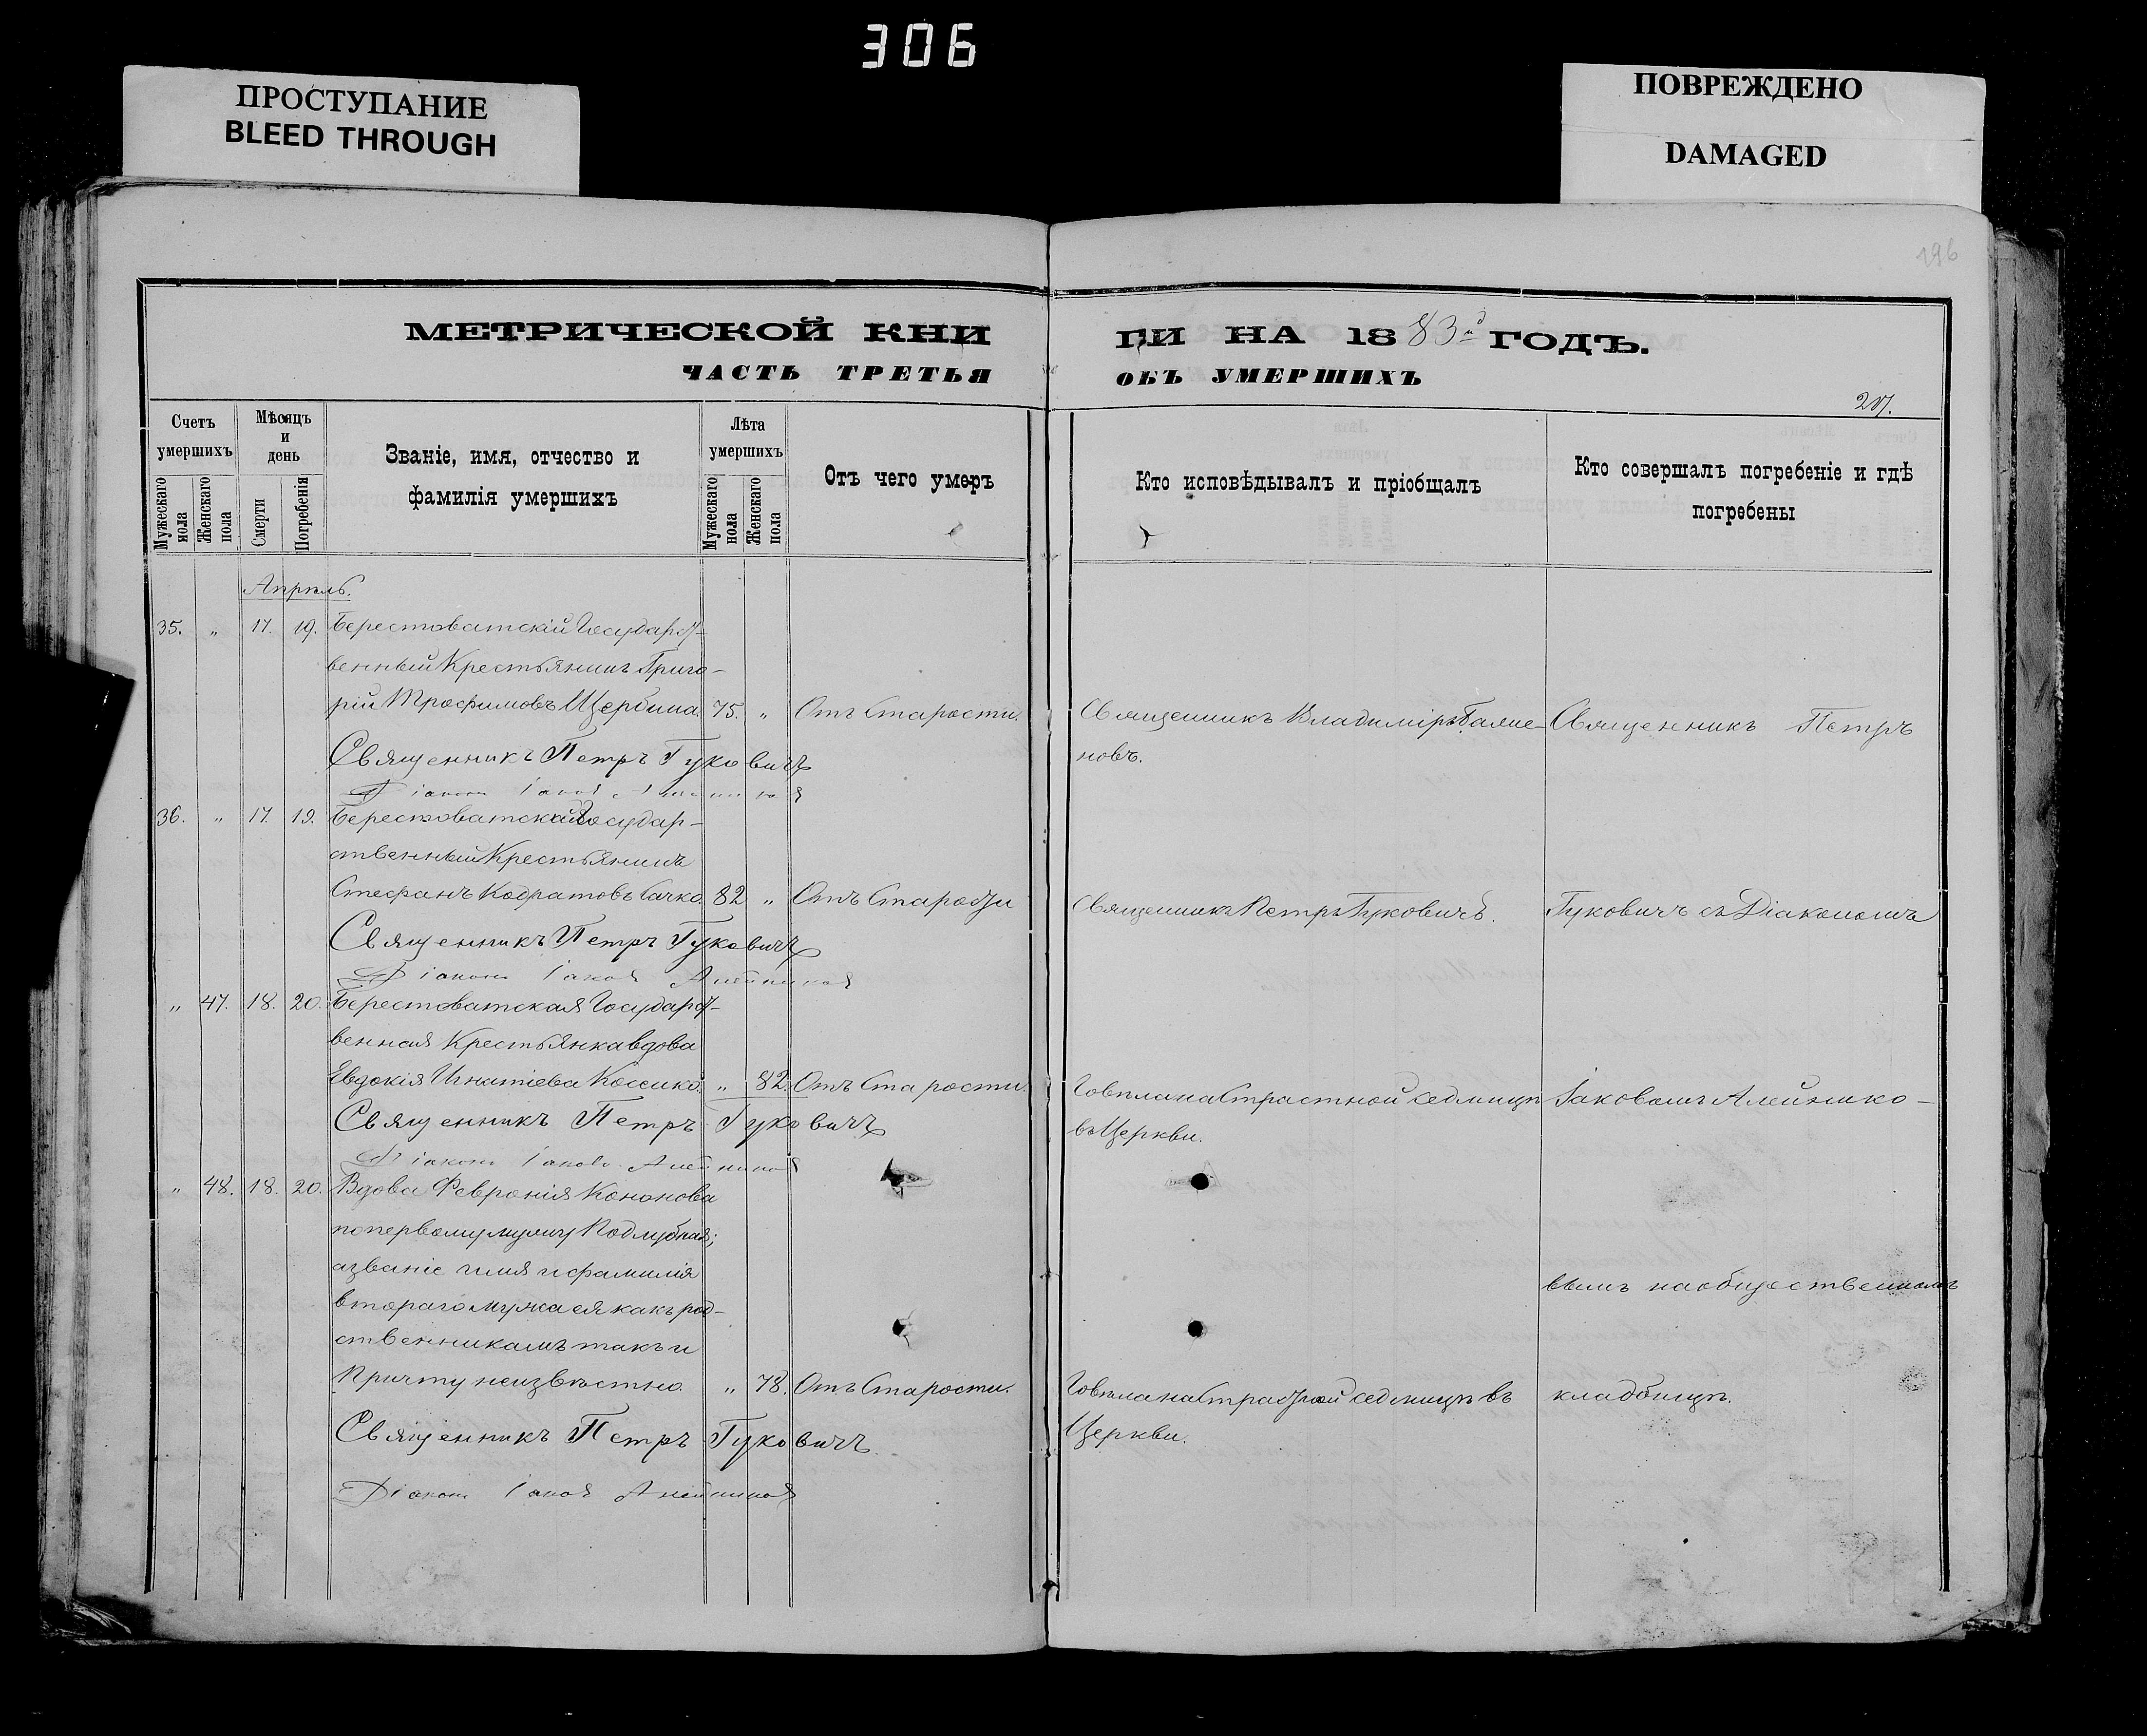 306
ПРОСТУПАНИЕ
BLEED THROUGH
ПОВРЕЖДЕНО
DAMAGED
196
МЕТРИЧЕСКОЙ КНИ
ГИ НА 1883й ГОДЪ.
ЧАСТЬ ТРЕТЬЯ
ОБЪ УМЕРШИХЪ
207.
Счетъ
умершихъ
Мужескаго
пола
Женскаго
пола
Мѣсяцъ
и
день
Смерти
Погребенія
Званіе, имя, отчество и
фамилія умершихъ
Лѣта
умершихъ
Мужескаго
пола
Женскаго
пола
Отъ чего умеръ
Кто исповѣдывалъ и пріобщалъ
Кто совершалъ погребеніе и гдѣ
погребены
Апрѣль.
35. „ 17. 19. Берестоватскій Государст-
венный Крестьянинъ Григо-
рій Трофимовъ Щербина. 75. „ Отъ Старости. Священникъ Владиміръ Священникъ Петръ
новъ.
Священникъ Петръ Гуковичъ
Діаконъ Іаковъ Алейниковъ
36. „ 17. 19. Берестоватскій Государ-
ственный Крестьянинъ
Стефанъ Кодратовъ Сачко 82 „ Отъ Старости Священникъ Петръ Гуковичъ. Гуковичъ съ Діакономъ
Священникъ Петръ Гуковичъ
Діаконъ Іаковъ Алейниковъ
„ 47. 18. 20. Берестоватская Государст-
венная Крестьянка вдова
Евдокія Игнатіева „ 82. Отъ Старости. Говѣла на Страстной седмицѣ Іаковомъ Алейнико-
въ Церкви.
Священникъ Петръ Гуковичъ
Діаконъ Іаковъ Алейниковъ
„ 48. 18. 20. Вдова Февронія Кононова
по первому мужу Поддубная;
а званіе имя и фамилія
втораго мужа ея какъ род-
ственникамъ такъ и
вымъ на общественномъ
Причту неизвѣстно. „ 78. Отъ Старости. Говѣла на Страстной седмицѣ въ кладбищѣ.
Церкви.
Священникъ Петръ Гуковичъ.
Діаконъ Іаковъ Алейниковъ